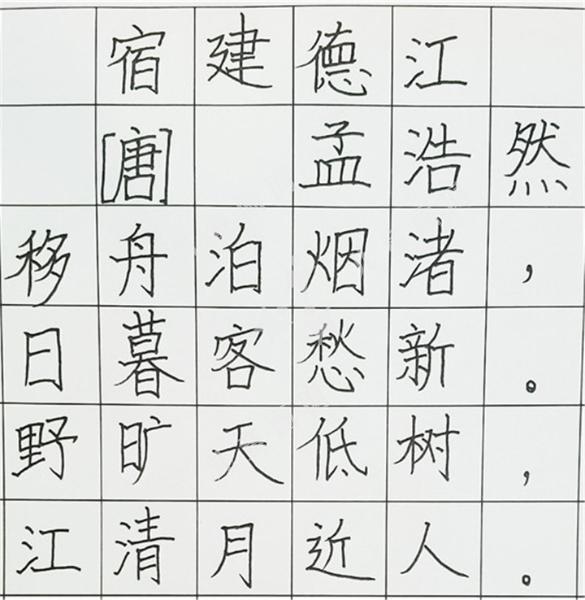 宿建德江
[唐] 孟浩然
移舟泊烟渚，
日暮客愁新。
野旷天低树，
江清月近人。